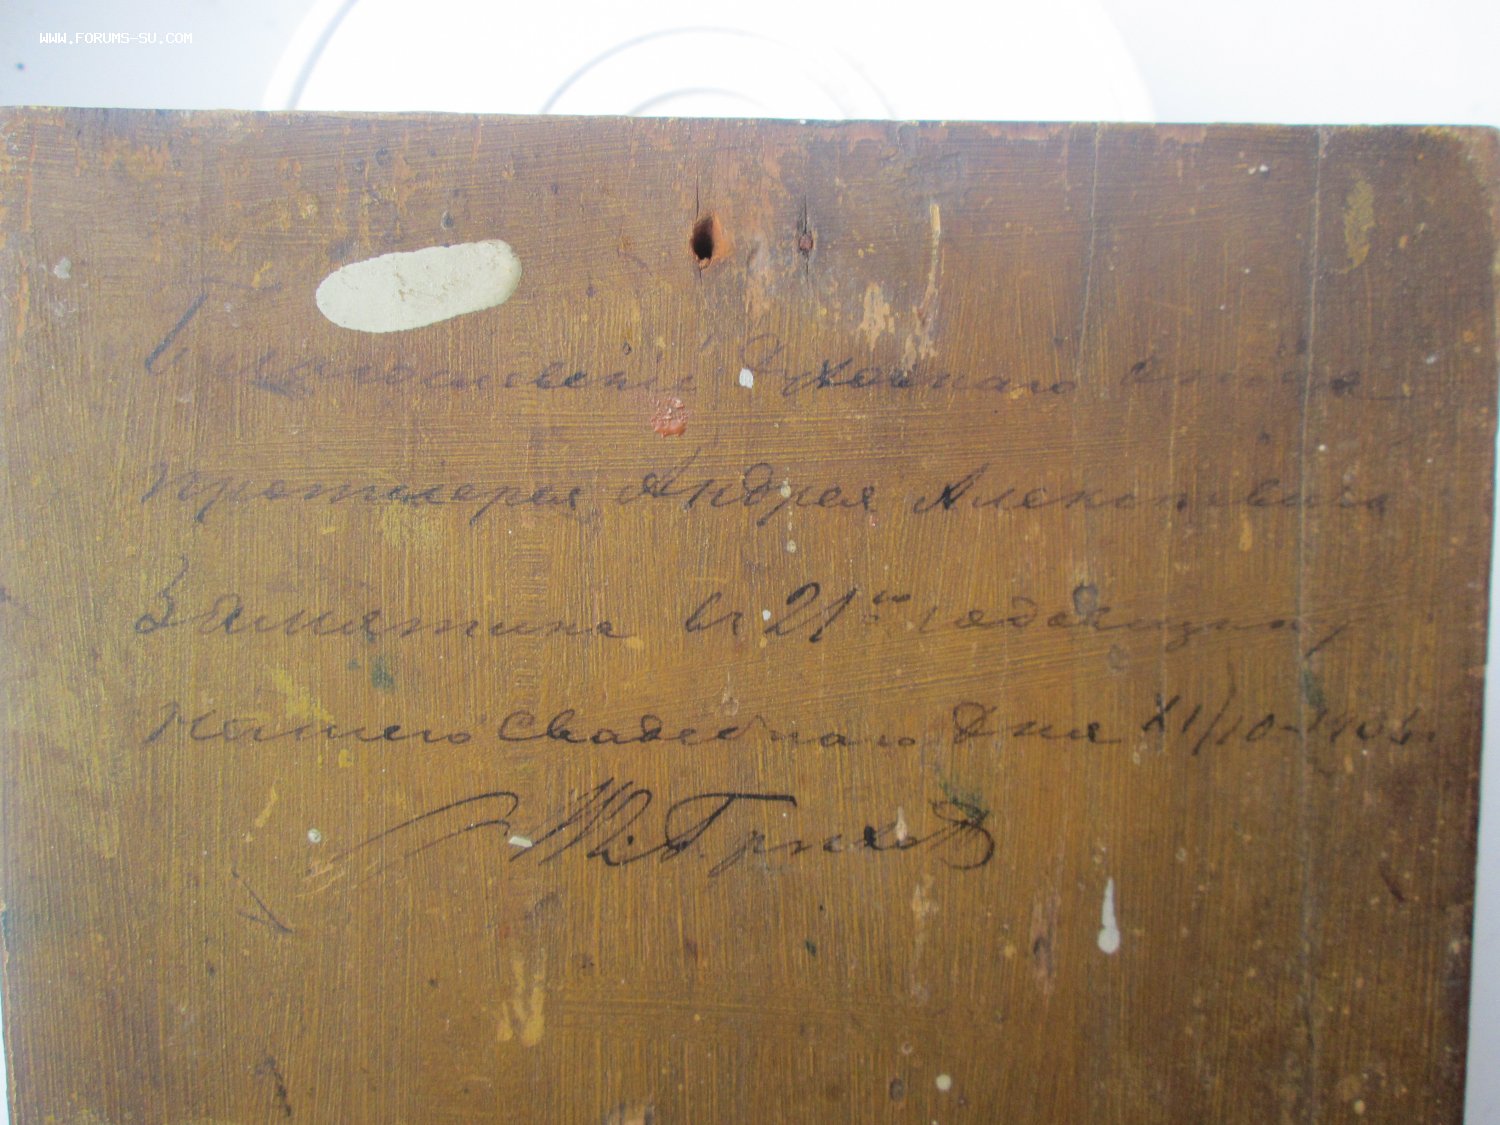 WWW.FORUMS-SU.COM
Благословение Духовнаго Отца
протоиерея Андрея Алексеевича
Замятина въ 21ю годовщину
нашего Свадебнаго Дня XI/10-